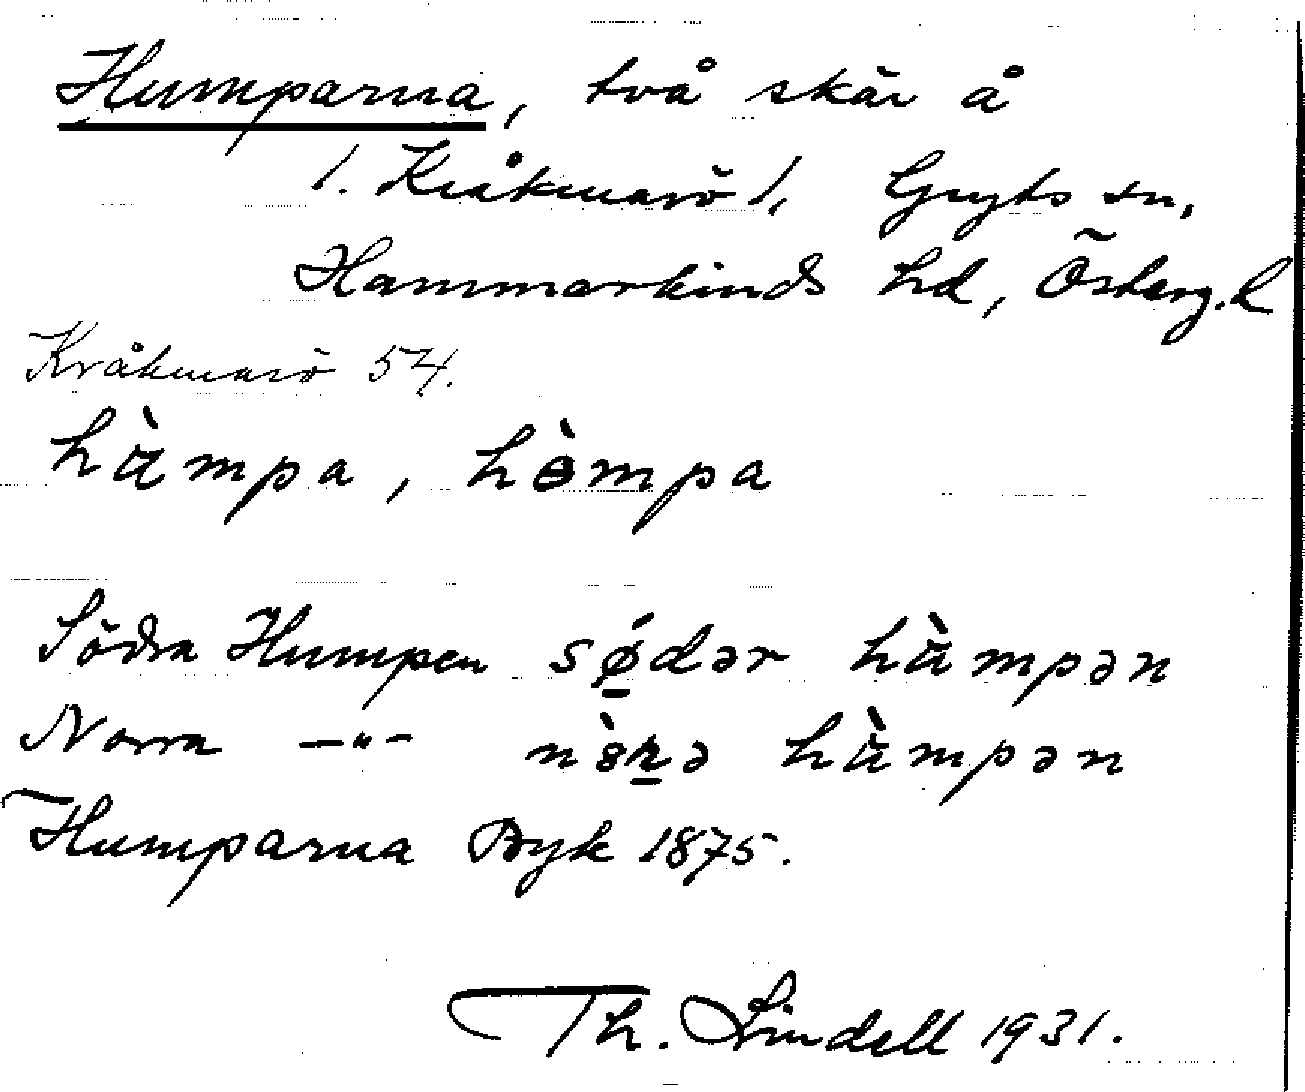 Humparna, två skär å
1. Kråkmarö 1, Gryts sn,
Hammarkinds hd, Österg. l
Kråkmarö 54.
hàmpa, hɵ̀mpa
Södra Humpen sǿ̱dər hàmpən
Norra —"— nɵ̀ṟə hàmpən
Humparna Byk 1875.
Th. Lindell 1931.